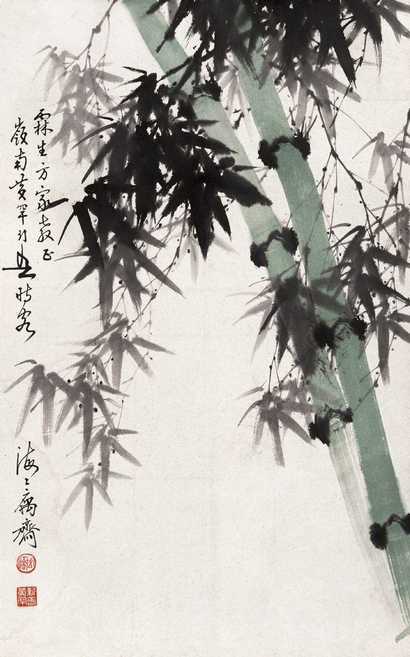 霖生方家教正
嶺南黄罕行並時客
海上寓齋